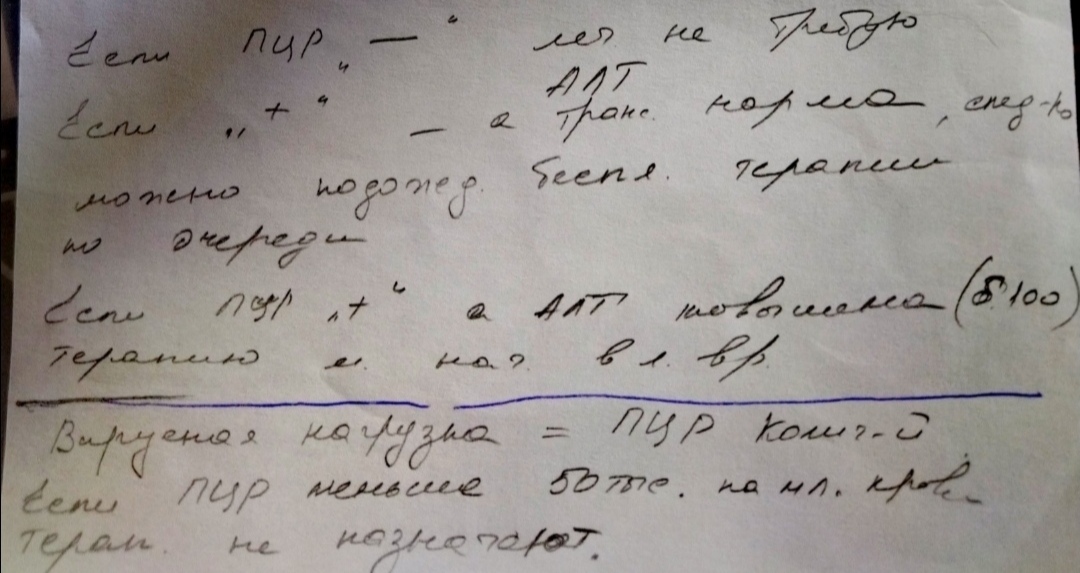 Если ПЦР „—“ леч не требую
Если „+“ — а транс. АЛТ норма, след-но
можно подожд. беспл. терапии
по очереди
Если ПЦР „+“ а АЛТ повышена (б.100)
терапию м. нач. в л. вр.
Вирусная нагрузка = ПЦР колич-й
Если ПЦР меньше 50 тыс. на мл. крови
терап. не назначают.